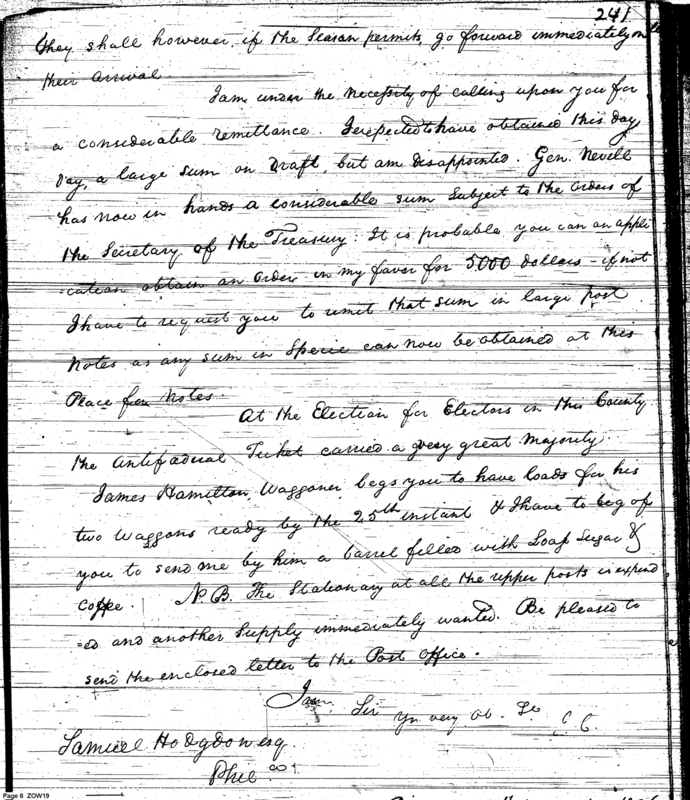 241
they shall however, if the Season permits, go forward immediately on
their arrival.
I am under the necessity of calling upon you for
a considerable remittance. I expected to have obtained this day
day, a large sum on Draft, but am disappointed. Gen. Nevill
has now in hands a considerable sum subject to the orders of
the Secretary of the Treasury. It is probable you can on appli
=cation obtain an order in my favor for 5000 dollars - if not
I have to request you to remit that sum in large post
notes as any sum in Specie can now be obtained at this
Place for Notes.
At the Election for Electors in this County
the Antifaderal Ticket carried a very great Majority.
James Hamilton, Waggoner begs you to have loads for his
two Waggons ready by the 25th instant & I have to beg of
you to send me by him a barrel filled with Loaf Sugar &
Coffee. N.B. The Stationary at all the upper posts is expend
=ed and another Supply immediately wanted. Be pleased to
send the enclosed letter to the Post Office.
I am Sir
Yr. very Ob. Se
Samuel Hodgdon esq.
Phil
Page 6 ZOW19